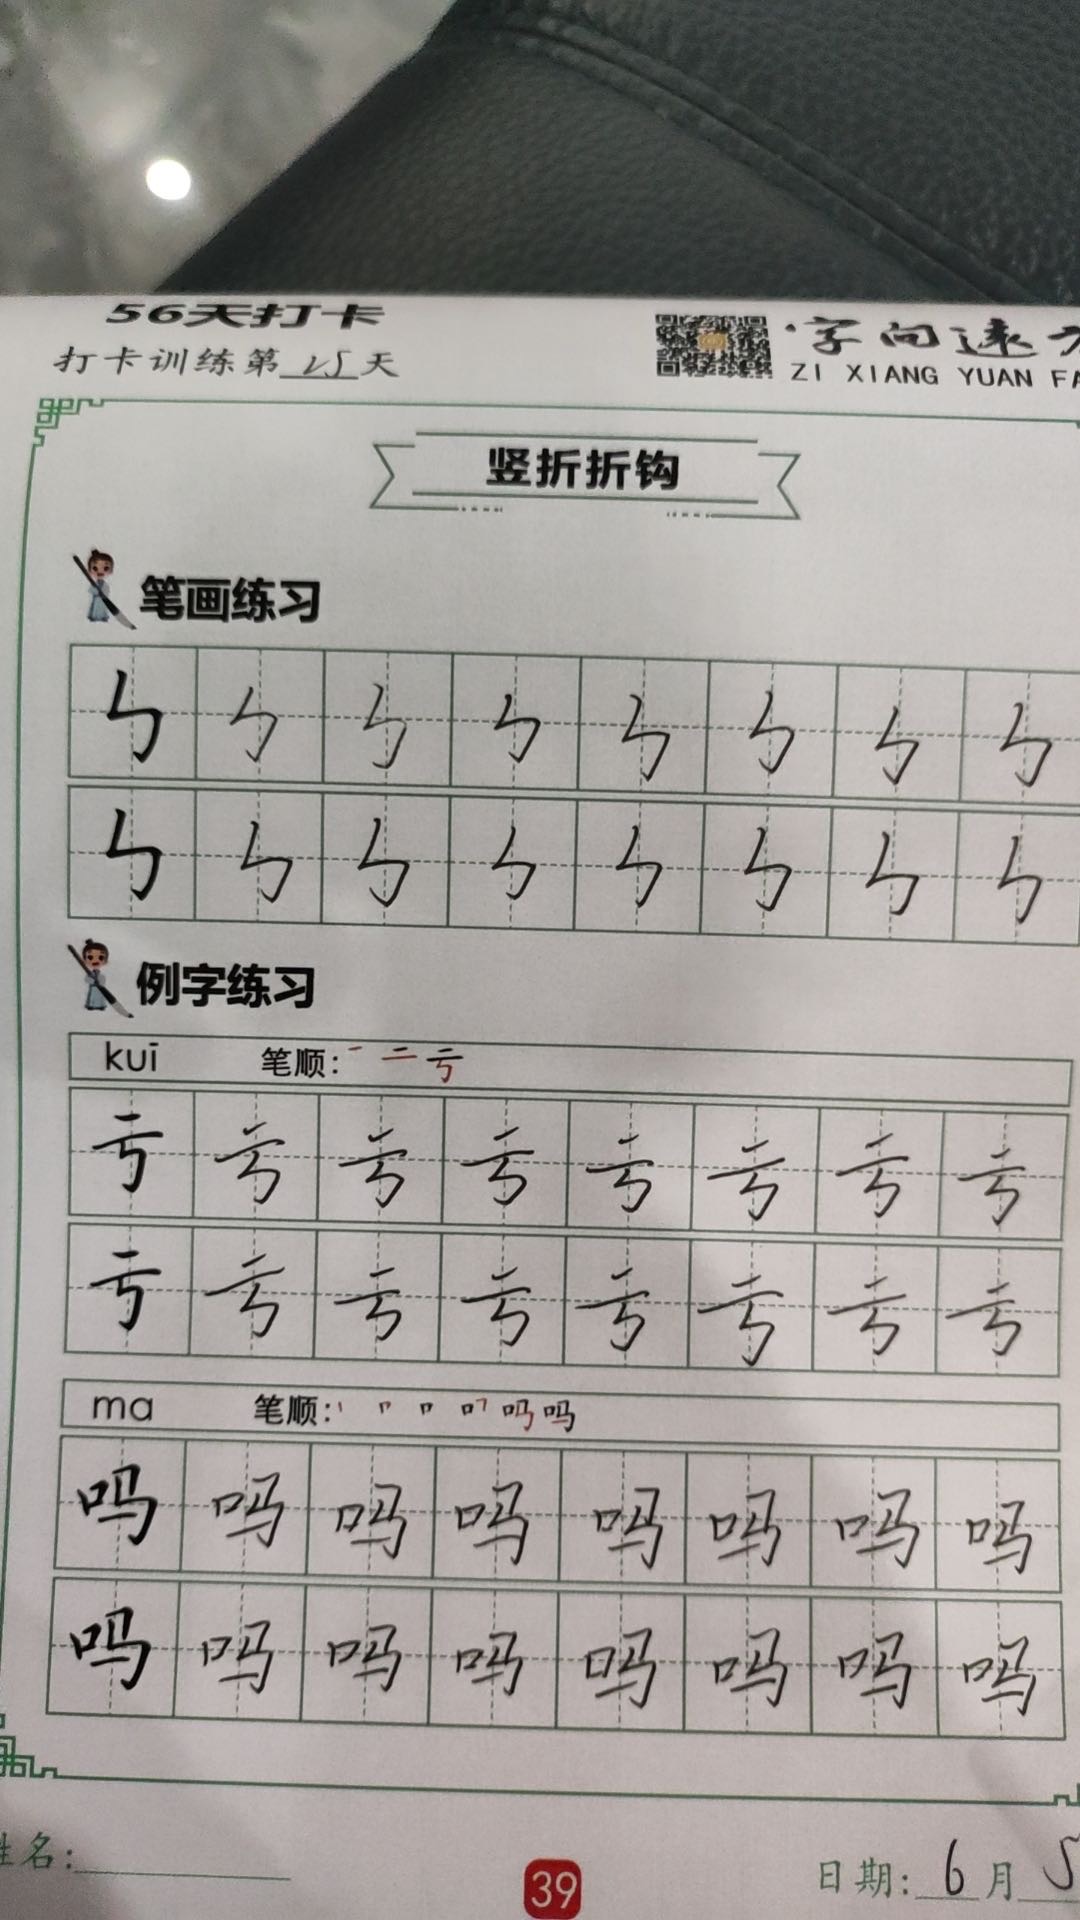 56天打卡
打卡训练第25天
字向远方
ZI XIANG YUAN FA
竖折折钩
笔画练习
ㄣ ㄣ ㄣ ㄣ ㄣ ㄣ ㄣ ㄣ
ㄣ ㄣ ㄣ ㄣ ㄣ ㄣ ㄣ ㄣ
例字练习
kuī 笔顺: 一 二 亏
亏 亏 亏 亏 亏 亏 亏 亏
亏 亏 亏 亏 亏 亏 亏 亏
ma 笔顺: 吗
吗 吗 吗 吗 吗 吗 吗 吗
吗 吗 吗 吗 吗 吗 吗 吗
姓名:
39
日期: 6月5